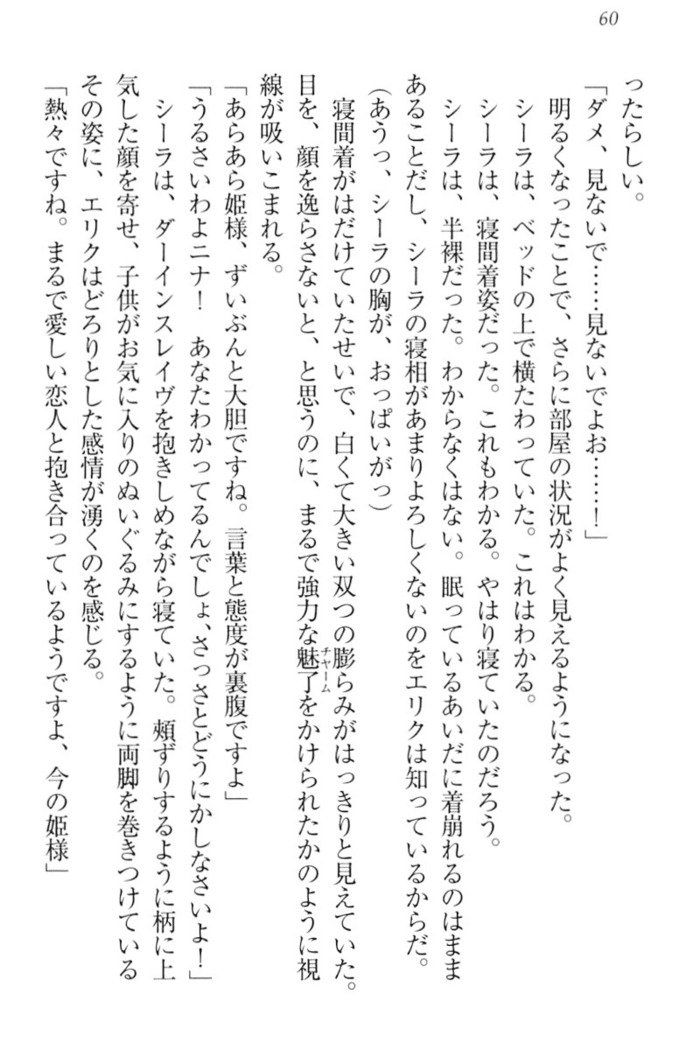 60
ったらしい。
「ダメ、見ないで……見ないでよお……！」
明るくなったことで、さらに部屋の状況がよく見えるようになった。
シーラは、ベッドの上で横たわっていた。これはわかる。
シーラは、寝間着姿だった。これもわかる。やはり寝ていたのだろう。
シーラは、半裸だった。わからなくはない。眠っているあいだに着崩れるのはまま
あることだし、シーラの寝相があまりよろしくないのをエリクは知っているからだ。
（あうっ、シーラの胸が、おっぱいがっ）
寝間着がはだけていたせいで、白くて大きい双つの膨らみがはっきりと見えていた。
目を、顔を逸らさないと、と思うのに、まるで強力な魅了チャームをかけられたかのように視
線が吸いこまれる。
「あらあら姫様、ずいぶんと大胆ですね。言葉と態度が裏腹ですよ」
「うるさいわよニナ！　あなたわかってるんでしょ、さっさとどうにかしなさいよ！」
シーラは、ダーインスレイヴを抱きしめながら寝ていた。頰ずりするように柄に上
気した顔を寄せ、子供がお気に入りのぬいぐるみにするように両脚を巻きつけている
その姿に、エリクはどろりとした感情が湧くのを感じる。
「熱々ですね。まるで愛しい恋人と抱き合っているようですよ、今の姫様」